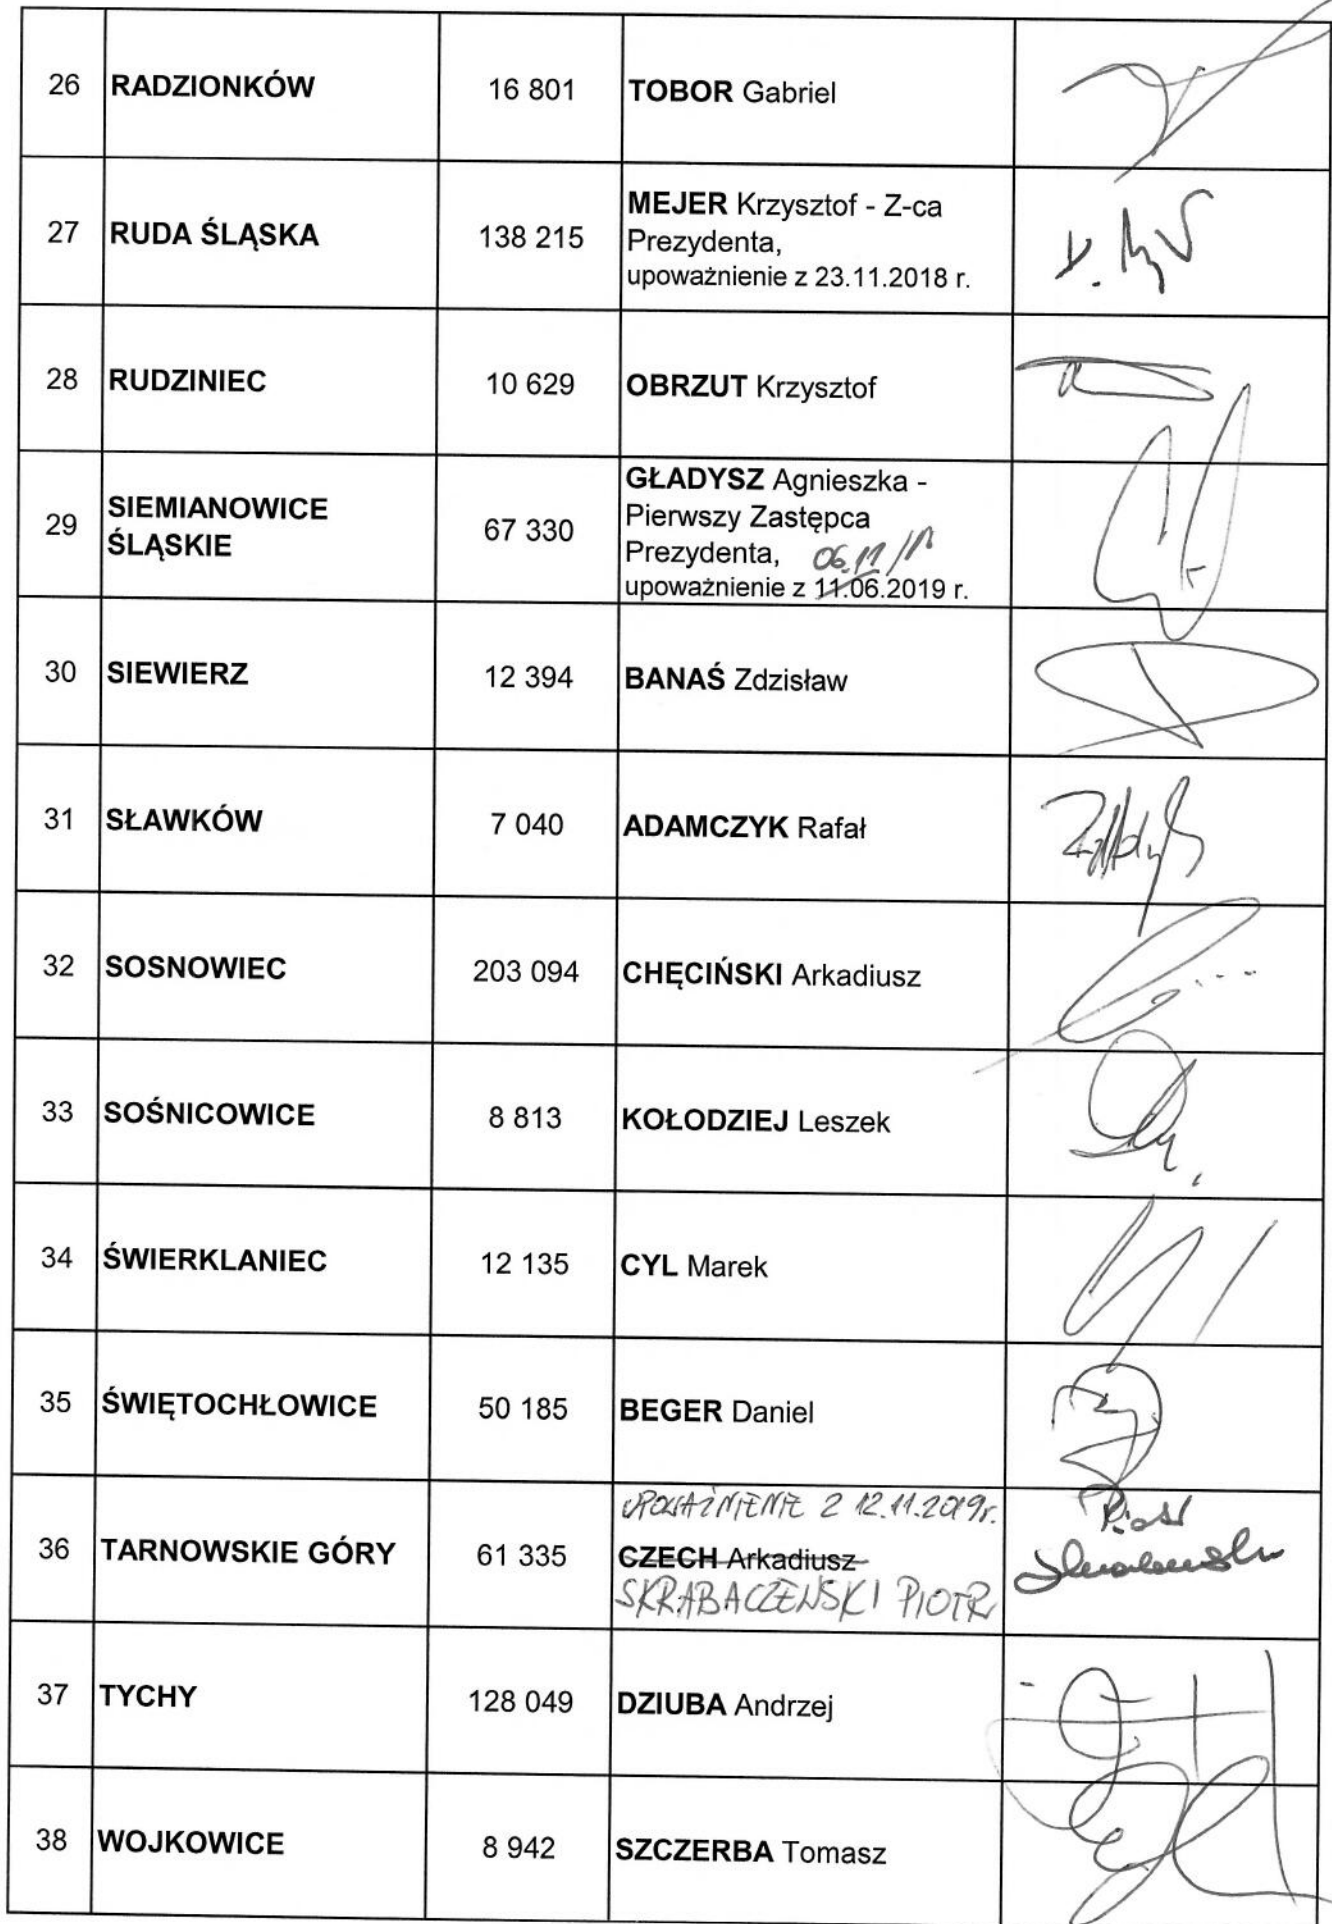 26 RADZIONKÓW 16 801 TOBOR Gabriel
27 RUDA ŚLĄSKA 138 215 MEJER Krzysztof - Z-ca
Prezydenta,
upoważnienie z 23.11.2018 r.
28 RUDZINIEC 10 629 OBRZUT Krzysztof
29 SIEMIANOWICE
ŚLĄSKIE 67 330 GŁADYSZ Agnieszka -
Pierwszy Zastępca
Prezydenta, 06.11
upoważnienie z 11.06.2019 r.
30 SIEWIERZ 12 394 BANAŚ Zdzisław
31 SŁAWKÓW 7 040 ADAMCZYK Rafał
32 SOSNOWIEC 203 094 CHĘCIŃSKI Arkadiusz
33 SOŚNICOWICE 8 813 KOŁODZIEJ Leszek
34 ŚWIERKLANIEC 12 135 CYL Marek
35 ŚWIĘTOCHŁOWICE 50 185 BEGER Daniel
UPOWAŻNIENIE Z 12.11.2019r.
36 TARNOWSKIE GÓRY 61 335 CZECH Arkadiusz
SKRABACZEWSKI PIOTR
Piotr
37 TYCHY 128 049 DZIUBA Andrzej
38 WOJKOWICE 8 942 SZCZERBA Tomasz